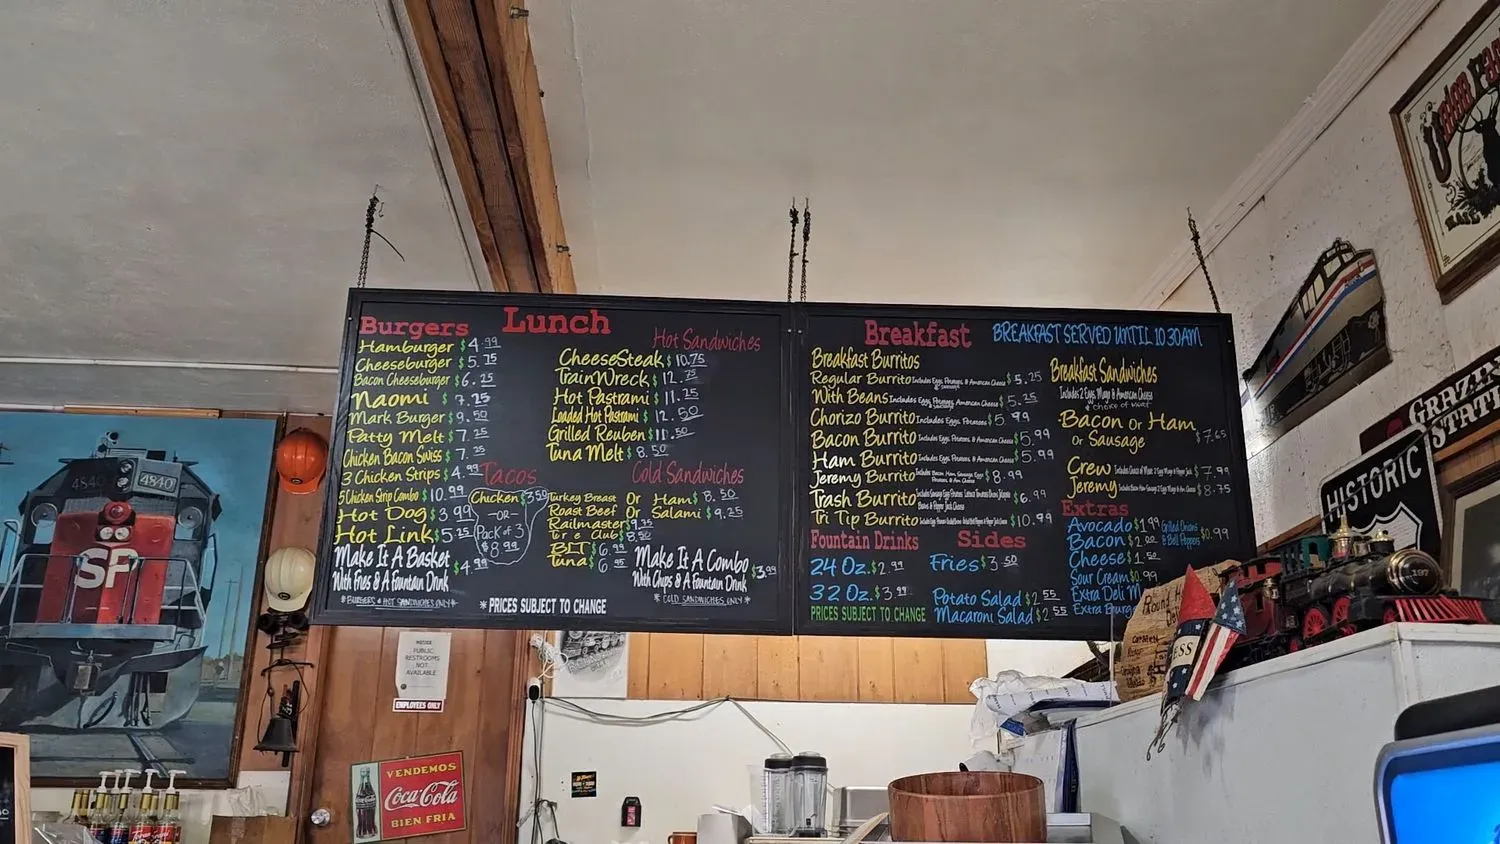 Lunch
Burgers
Hamburger $4.99
Cheeseburger $5.75
Bacon Cheeseburger $6.25
Naomi $7.25
Mark Burger $9.50
Patty Melt $7.25
Chicken Bacon Swiss $7.25
3 Chicken Strips $4.99
5 Chicken Strip Combo $10.99
Hot Dog $3.99
Hot Link $5.25
Make It A Basket $4.99
With Fries & A Fountain Drink
*BURGERS & HOT SANDWICHES ONLY*
Tacos
Chicken $3.50
-OR-
Pack of 3
$8.99
Hot Sandwiches
CheeseSteak $10.75
TrainWreck $12.75
Hot Pastrami $11.25
Loaded Hot Pastrami $12.50
Grilled Reuben $11.50
Tuna Melt $8.50
Cold Sandwiches
Turkey Breast Or Ham $8.50
Roast Beef Or Salami $9.25
Railmaster $9.35
Club $8.50
BLT $6.95
Tuna $6.95
Make It A Combo $3.99
With Chips & A Fountain Drink
*COLD SANDWICHES ONLY*
*PRICES SUBJECT TO CHANGE
Breakfast
BREAKFAST SERVED UNTIL 10:30AM
Breakfast Burritos
Regular Burrito Includes Eggs Potatoes & American Cheese $5.25
With Beans Includes Eggs Potatoes & American Cheese $5.25
Chorizo Burrito Includes Eggs Potatoes $5.99
Bacon Burrito Includes Eggs Potatoes & American Cheese $5.99
Ham Burrito Includes Eggs Potatoes & American Cheese $5.99
Jeremy Burrito $8.99
Trash Burrito $6.99
Tri Tip Burrito $10.99
Breakfast Sandwiches
Includes 2 Eggs Mayo & American Cheese
& choice of meat
Bacon or Ham
or Sausage $7.65
Crew $7.99
Jeremy $8.75
Extras
Avocado $1.99
Bacon $2.00
Cheese $1.50
Sour Cream $0.99
Extra Deli M
Extra Burge
Grilled Onions
& Bell Peppers $0.99
Fountain Drinks
24 Oz. $2.99
32 Oz. $3.99
PRICES SUBJECT TO CHANGE
Sides
Fries $3.50
Potato Salad $2.55
Macaroni Salad $2.55
4840
4840
SP
NOTICE
PUBLIC
RESTROOMS
NOT
AVAILABLE
EMPLOYEES ONLY
VENDEMOS
Coca-Cola
BIEN FRIA
HISTORIC
197